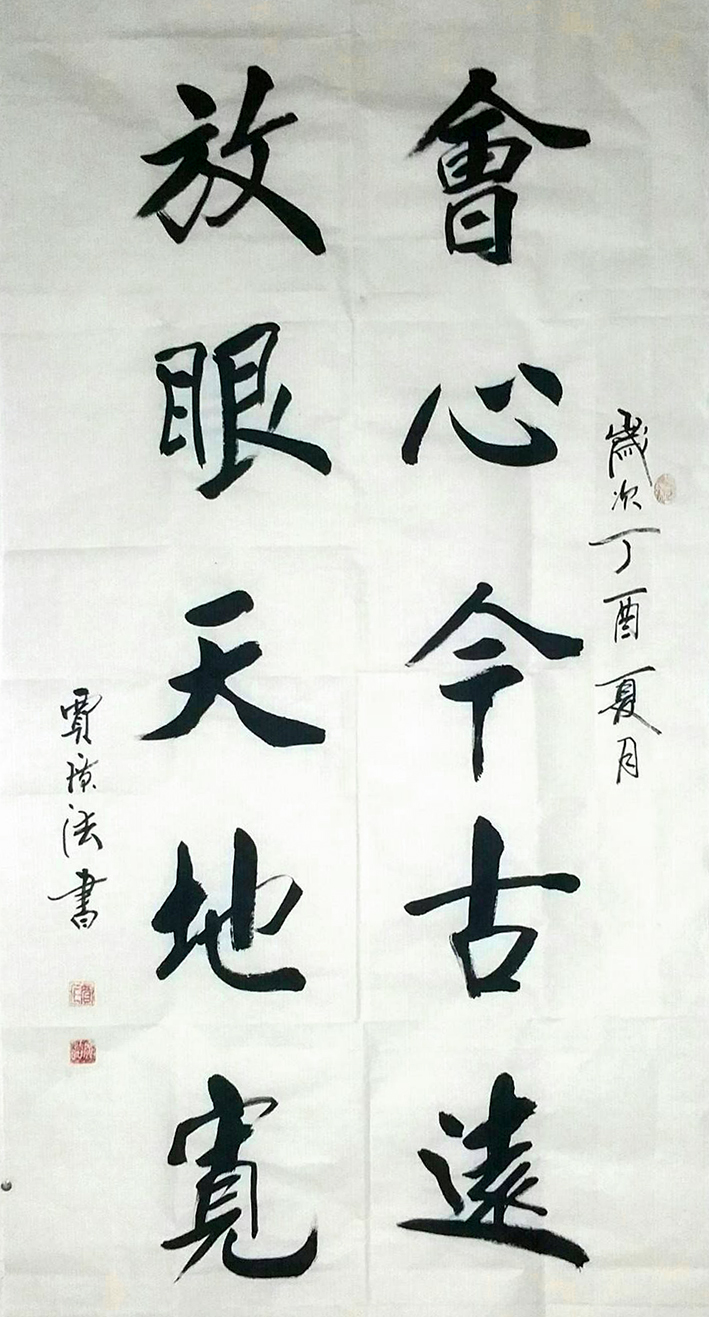 歲次丁酉夏月
會心今古遠
放眼天地寬
賈 法書